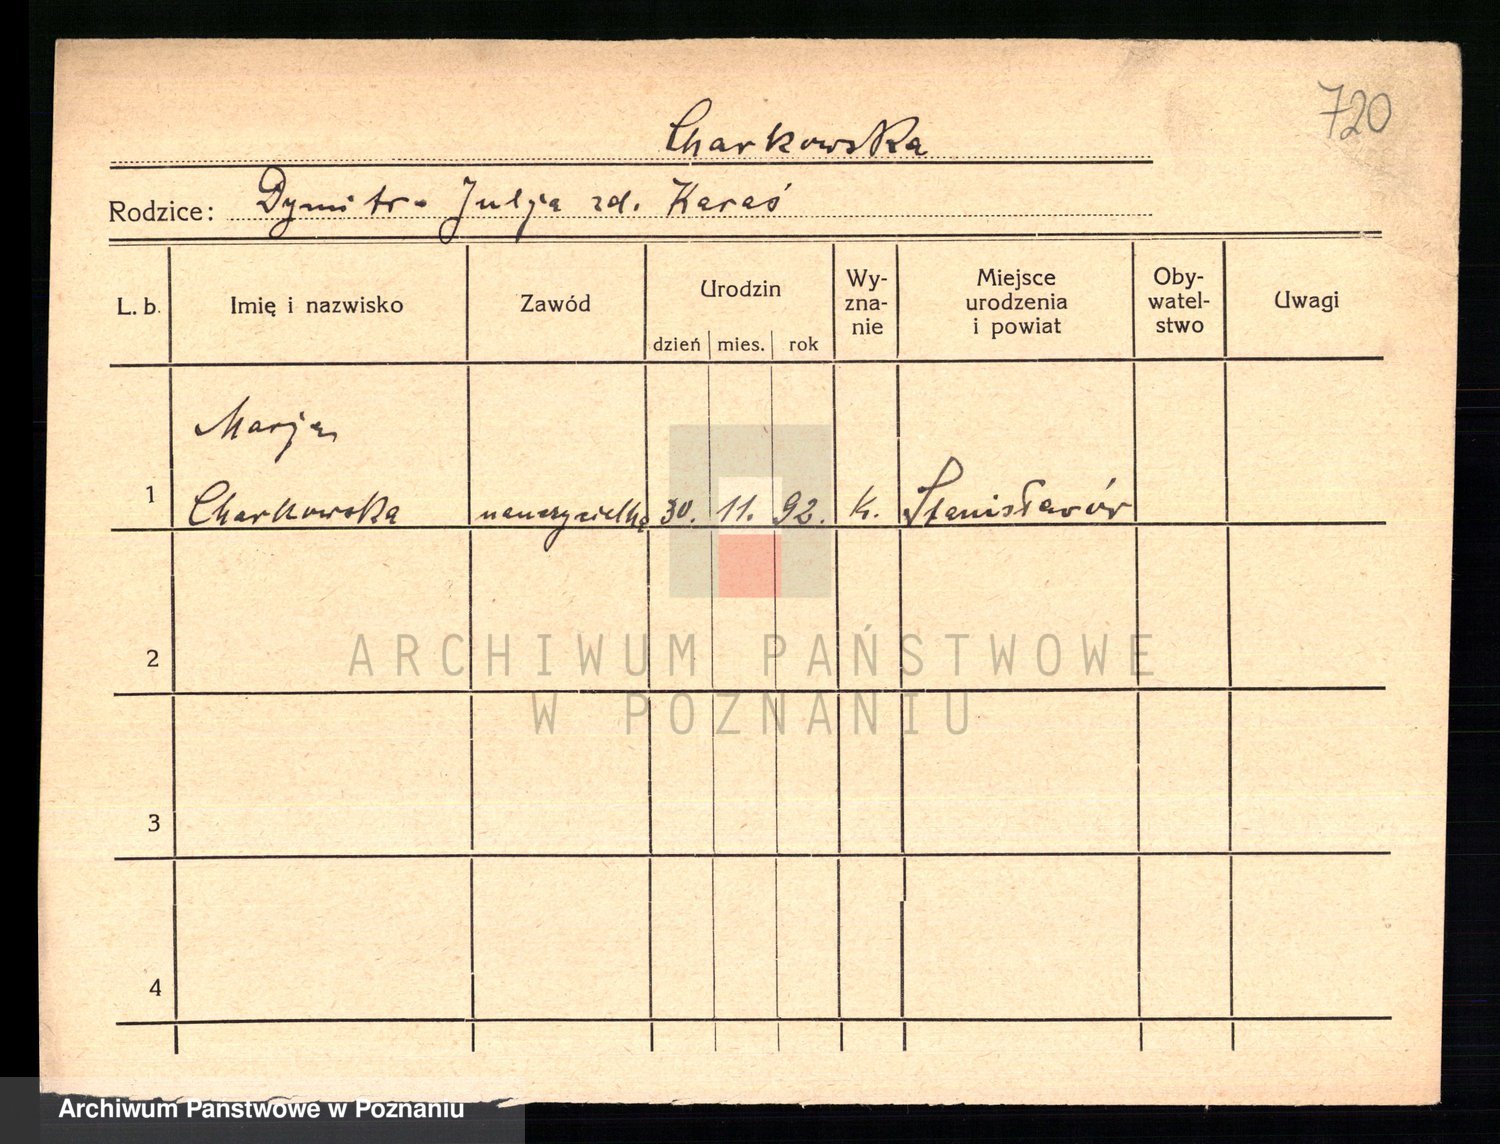 720
Charkowska
Rodzice: Dymitr - Julja zd. Karaś
L. b. Imię i nazwisko Zawód Urodzin dzień mies. rok Wy-zna-nie Miejsce urodzenia i powiat Oby-watel-stwo Uwagi
Marja
1 Charkowska nauczycielka 30. 11. 92. k. Stanisławów
2
ARCHIWUM PAŃSTWOWE
W POZNANIU
3
4
Archiwum Państwowe w Poznaniu